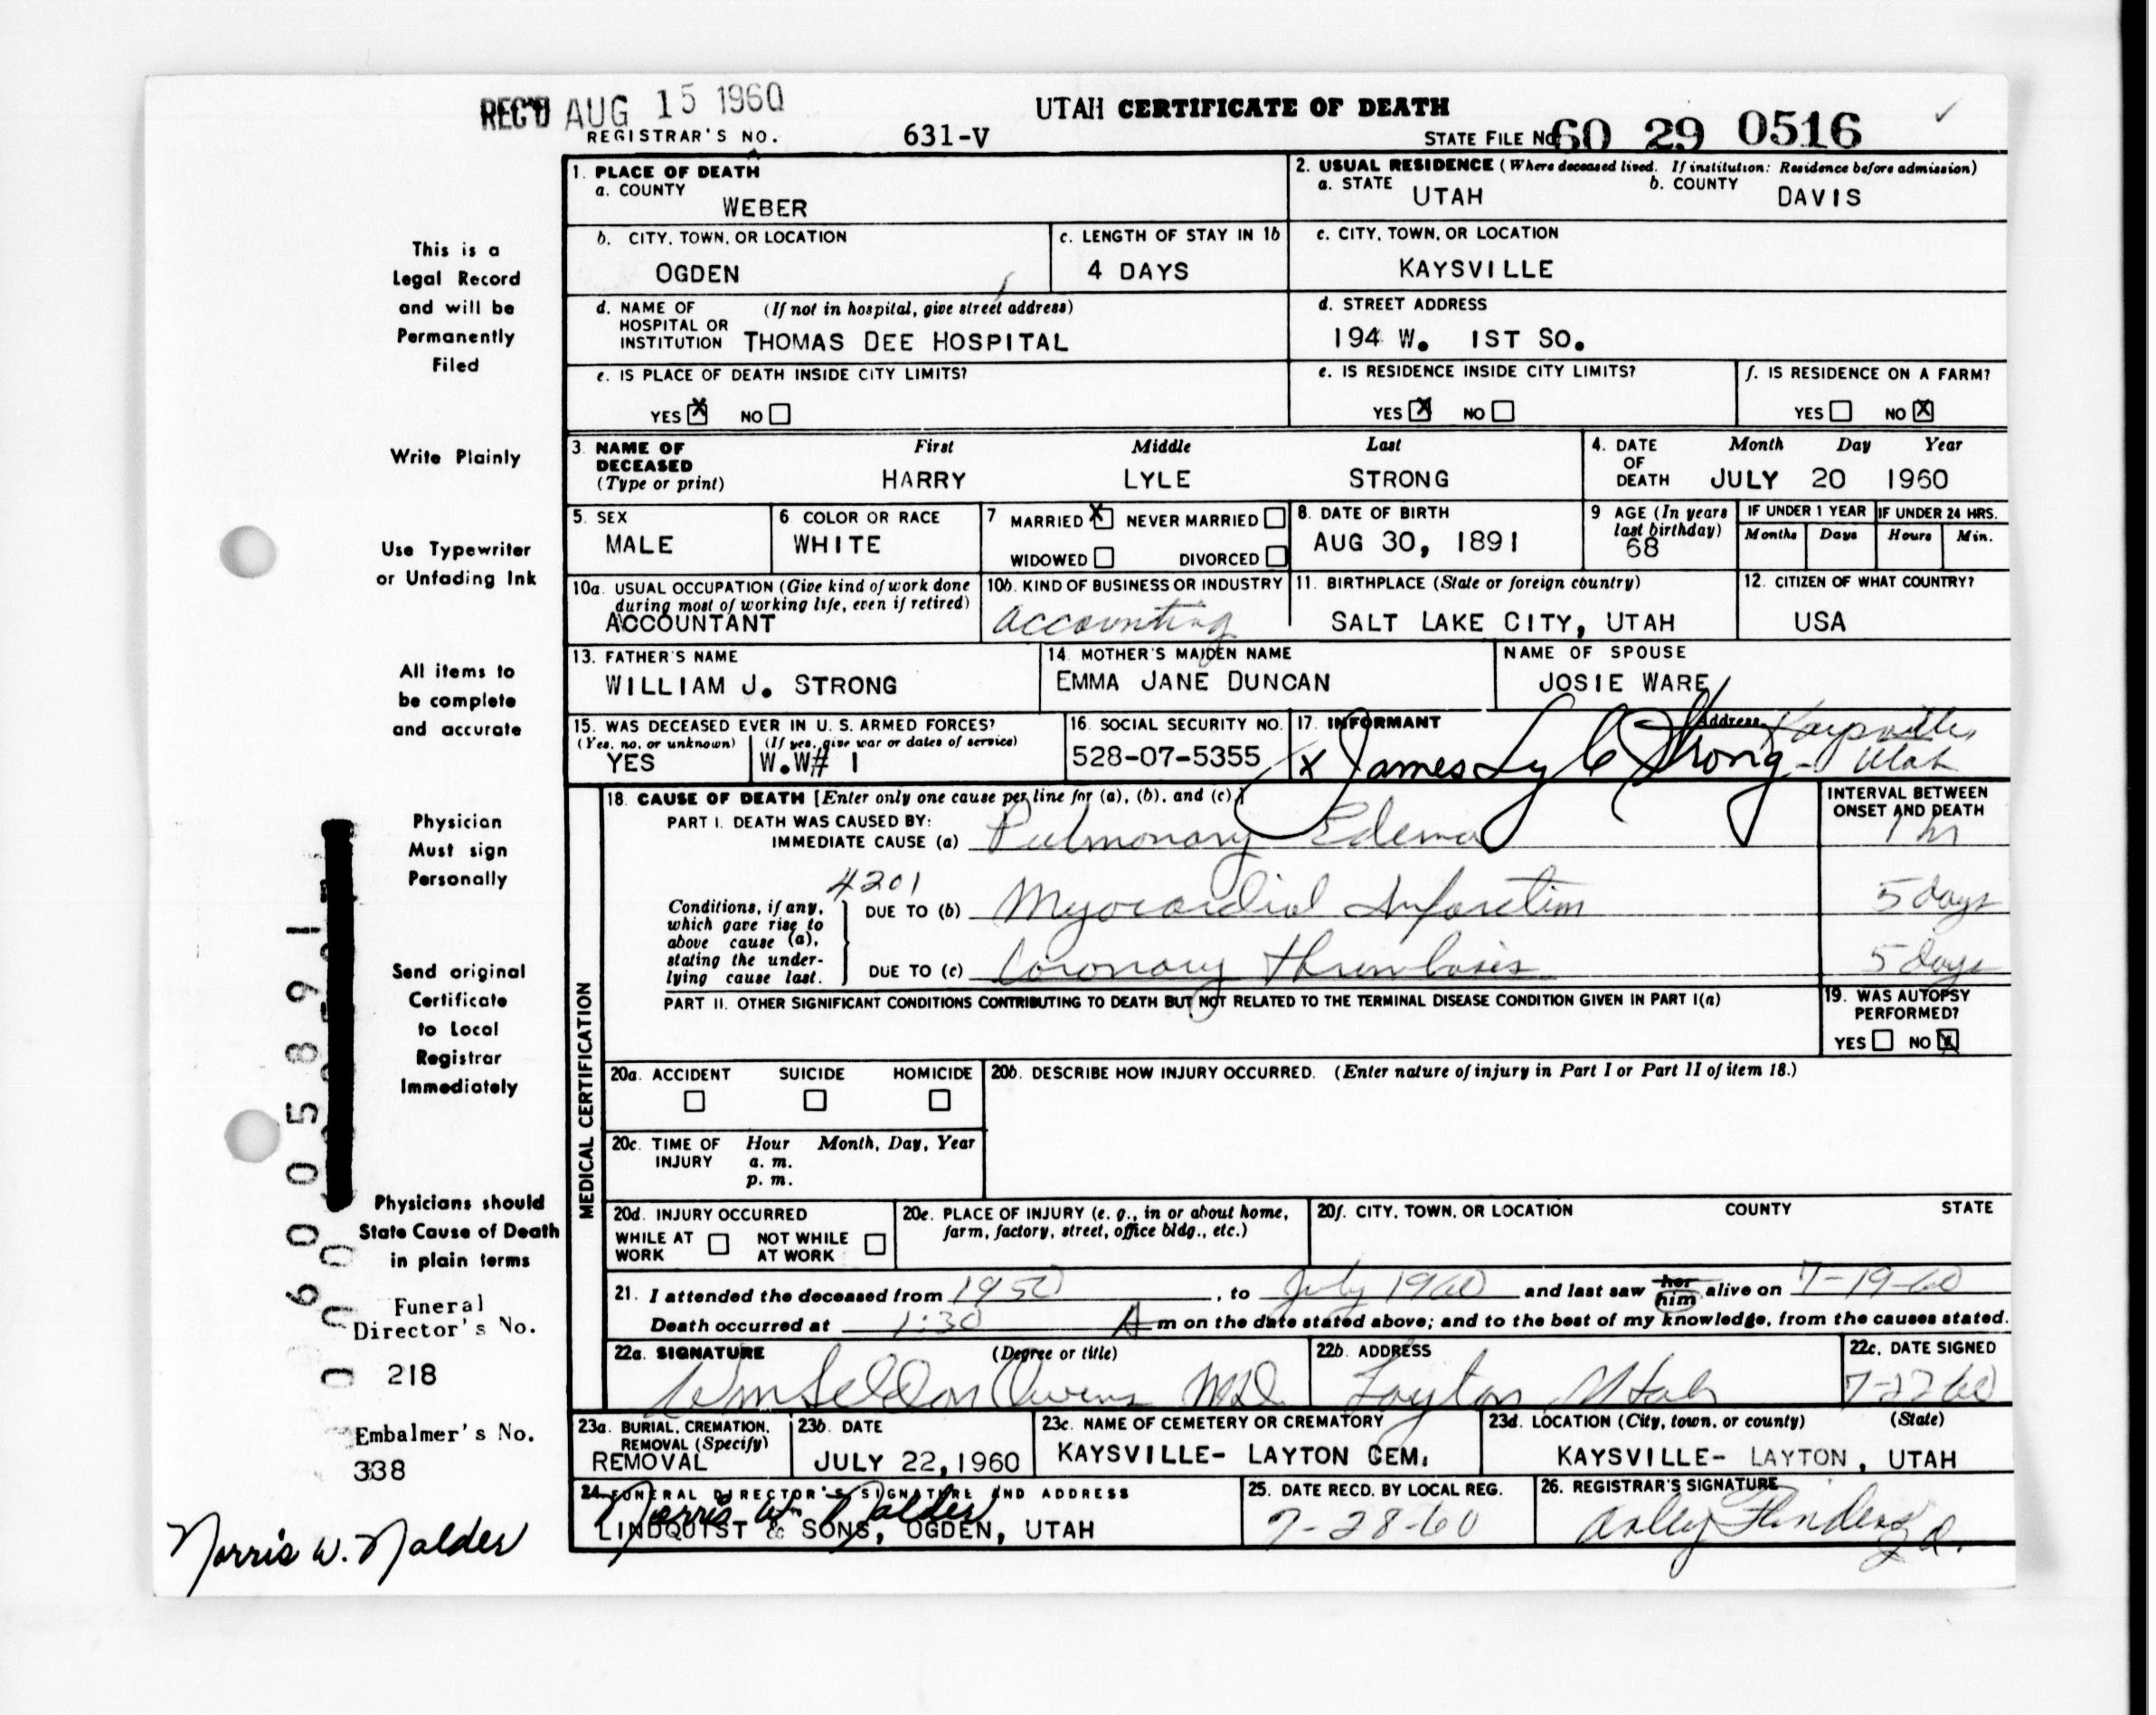 REC'D AUG 15 1960
UTAH CERTIFICATE OF DEATH
REGISTRAR'S NO. 631-V
STATE FILE NO. 60 29 0516
1. PLACE OF DEATH
a. COUNTY
WEBER
2. USUAL RESIDENCE (Where deceased lived. If institution: Residence before admission)
a. STATE UTAH b. COUNTY DAVIS
b. CITY, TOWN, OR LOCATION
OGDEN
c. LENGTH OF STAY IN 1b
4 DAYS
c. CITY, TOWN, OR LOCATION
KAYSVILLE
d. NAME OF HOSPITAL OR INSTITUTION (If not in hospital, give street address)
THOMAS DEE HOSPITAL
d. STREET ADDRESS
194 W. 1ST SO.
e. IS PLACE OF DEATH INSIDE CITY LIMITS?
YES X NO
e. IS RESIDENCE INSIDE CITY LIMITS?
YES X NO
f. IS RESIDENCE ON A FARM?
YES NO X
3. NAME OF DECEASED (Type or print)
First Middle Last
HARRY LYLE STRONG
4. DATE OF DEATH
Month Day Year
JULY 20 1960
5. SEX
MALE
6 COLOR OR RACE
WHITE
7 MARRIED X NEVER MARRIED
WIDOWED DIVORCED
8. DATE OF BIRTH
AUG 30, 1891
9 AGE (In years last birthday)
68
IF UNDER 1 YEAR
Months Days
IF UNDER 24 HRS.
Hours Min.
10a. USUAL OCCUPATION (Give kind of work done during most of working life, even if retired)
ACCOUNTANT
10b. KIND OF BUSINESS OR INDUSTRY
accounting
11. BIRTHPLACE (State or foreign country)
SALT LAKE CITY, UTAH
12. CITIZEN OF WHAT COUNTRY?
USA
13. FATHER'S NAME
WILLIAM J. STRONG
14. MOTHER'S MAIDEN NAME
EMMA JANE DUNCAN
NAME OF SPOUSE
JOSIE WARE
15. WAS DECEASED EVER IN U. S. ARMED FORCES?
(Yes, no, or unknown) (If yes, give war or dates of service)
YES W.W# 1
16. SOCIAL SECURITY NO.
528-07-5355
17. INFORMANT Address
x James Lyle Strong - Kaysville, Utah
MEDICAL CERTIFICATION
18. CAUSE OF DEATH [Enter only one cause per line for (a), (b), and (c).]
INTERVAL BETWEEN ONSET AND DEATH
PART I. DEATH WAS CAUSED BY:
IMMEDIATE CAUSE (a) Pulmonary Edema 1 hr
4201
Conditions, if any, which gave rise to above cause (a), stating the underlying cause last.
DUE TO (b) Myocardial Infarction 5 days
DUE TO (c) Coronary thrombosis 5 days
PART II. OTHER SIGNIFICANT CONDITIONS CONTRIBUTING TO DEATH BUT NOT RELATED TO THE TERMINAL DISEASE CONDITION GIVEN IN PART I(a)
19. WAS AUTOPSY PERFORMED?
YES NO X
20a. ACCIDENT SUICIDE HOMICIDE
20b. DESCRIBE HOW INJURY OCCURRED. (Enter nature of injury in Part I or Part II of item 18.)
20c. TIME OF INJURY Hour Month, Day, Year
a. m.
p. m.
20d. INJURY OCCURRED
WHILE AT WORK NOT WHILE AT WORK
20e. PLACE OF INJURY (e. g., in or about home, farm, factory, street, office bldg., etc.)
20f. CITY, TOWN, OR LOCATION COUNTY STATE
21. I attended the deceased from 1950, to July 1960 and last saw her him alive on 7-19-60
Death occurred at 1:30 A m on the date stated above; and to the best of my knowledge, from the causes stated.
22a. SIGNATURE (Degree or title)
Wm Seldon Owens MD
22b. ADDRESS
Layton Utah
22c. DATE SIGNED
7-22 60
23a. BURIAL, CREMATION, REMOVAL (Specify)
REMOVAL
23b. DATE
JULY 22, 1960
23c. NAME OF CEMETERY OR CREMATORY
KAYSVILLE- LAYTON CEM.
23d. LOCATION (City, town, or county) (State)
KAYSVILLE- LAYTON, UTAH
24 FUNERAL DIRECTOR'S SIGNATURE AND ADDRESS
Norris W. Nalder
LINDQUIST & SONS, OGDEN, UTAH
25. DATE RECD. BY LOCAL REG.
7-28-60
26. REGISTRAR'S SIGNATURE
This is a
Legal Record
and will be
Permanently
Filed
Write Plainly
Use Typewriter
or Unfading Ink
All items to
be complete
and accurate
Physician
Must sign
Personally
Send original
Certificate
to Local
Registrar
Immediately
Physicians should
State Cause of Death
in plain terms
Funeral
Director's No.
218
Embalmer's No.
338
Norris W. Nalder